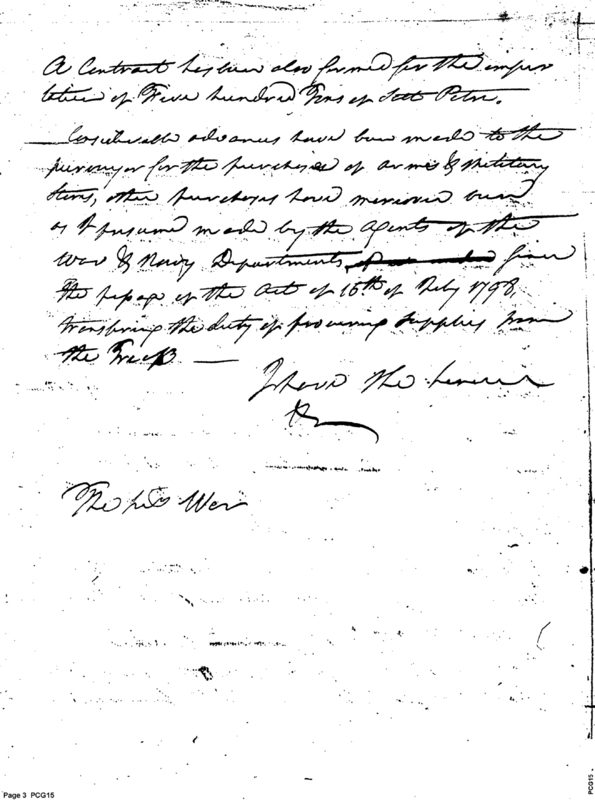 A Contract has been also formed for the impor
tation of Five hundred Tons of Salt Petre.
Considerable advances have been made to the
purveyor for the purchase of arms & Military
Stores, other purchases have moreover been
as I presume made by the Agents of the
War & Navy Departments since
the passage of the Act of 16th of July 1798,
transfering the duty of procuring supplies from
the Treasy —
I have the honour
The War
Page 3 PCG15
PCG15